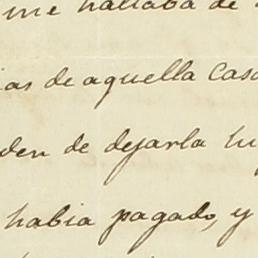 me hallaba de
as de aquella Casa
den de dejarla lu
habia pagado, y